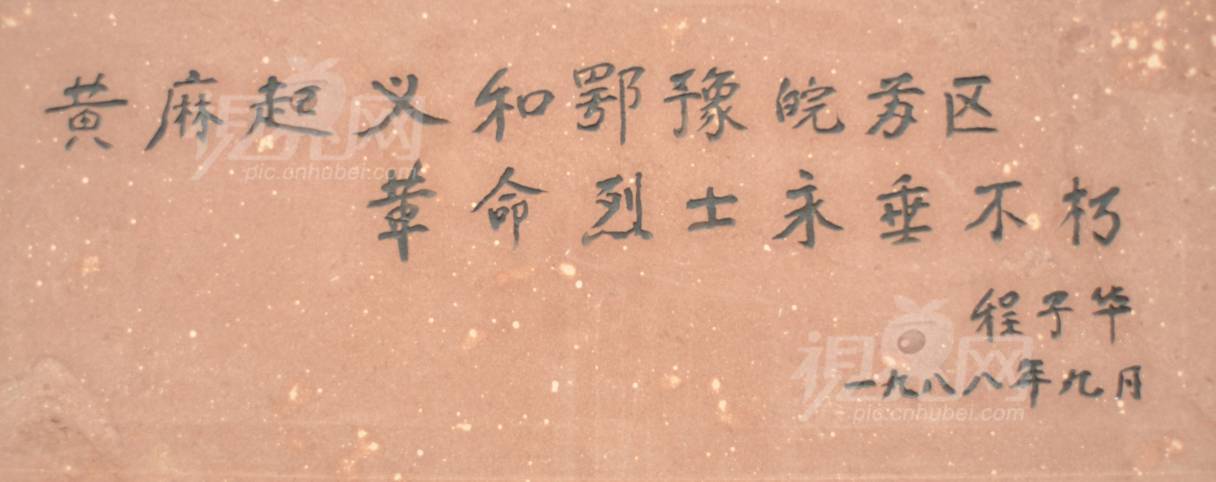 黄麻起义和鄂豫皖苏区
革命烈士永垂不朽
程子华
一九八八年九月
视界网
pic.cnhubei.com
视界网
pic.cnhubei.com